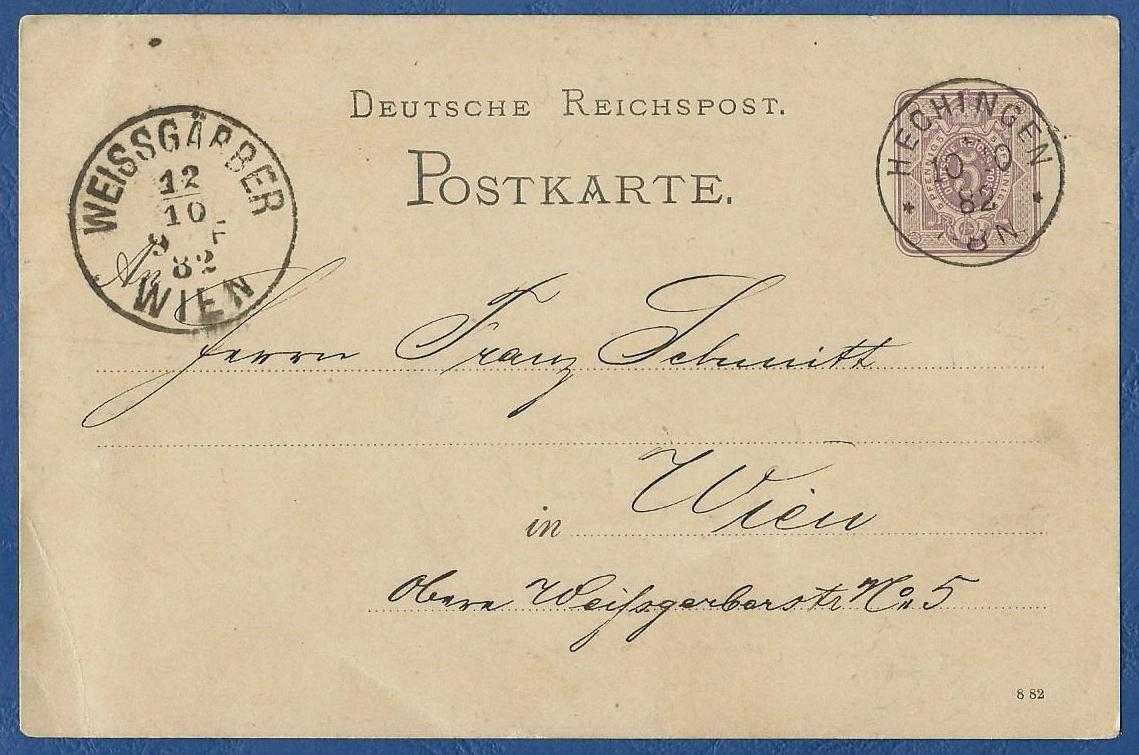 DEUTSCHE REICHSPOST.
POSTKARTE.
HECHINGEN
10 10
82
8 N
5
WEISSGÄRBER
12
10
9
82
WIEN
An
Herrn Franz Schmitt
in Wien
Obere Weißgerberstr No 5
8 82